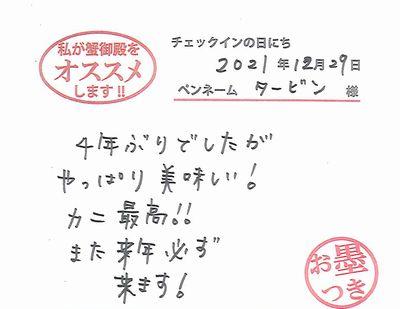 私が蟹御殿を
オススメ
します!!
チェックインの日にち
2021年12月29日
ペンネーム タービン 様
4年ぶりでしたが
やっぱり美味しい!
カニ最高!!
また来年必ず
来ます!
お墨
つき